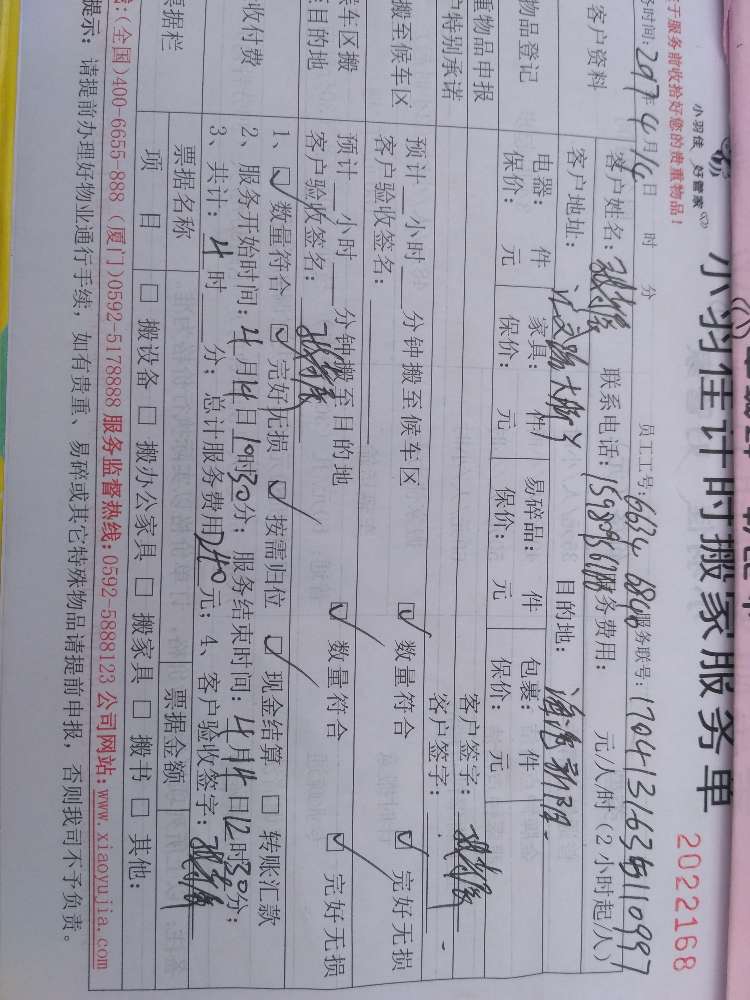 小羽佳 好管家
小羽佳计时搬家服务单
2022168
于服务前收拾好您的贵重物品!
务时间: 2017年4月14日 时 分 员工工号: 6634 6868 服务联号:
客户资料 客户姓名: 联系电话: 服务费用: 元/人/时(2小时起/人)
客户地址: 目的地: 海沧新阳
物品登记 电器: 件 家具: 件 易碎品: 件 包裹: 件
保价: 元 保价: 元 保价: 元 保价: 元
重物品申报 客户签字:
户特别承诺 客户签字:
搬至候车区 预计__小时__分钟搬至候车区 ☑ 数量符合 ☑ 完好无损
客户验收签名:
候车区搬至目的地 预计__小时__分钟搬至目的地 ☑ 数量符合 ☑ 完好无损
客户验收签名:
收付费 1、☑ 数量符合 ☑ 完好无损 ☑ 按需归位 ☑ 现金结算 □ 转账汇款
2、服务开始时间: 4月14日10时30分; 服务结束时间: 4月14日12时30分;
3、共计: 4时__分; 总计服务费用240元; 4、客户验收签字:
票据栏 票据名称 票据金额
项 目 □ 搬设备 □ 搬办公家具 □ 搬家具 □ 搬书 □ 其他:
线:(全国)400-6655-888 (厦门)0592-5178888 服务监督热线:0592-5888123 公司网站:www.xiaoyujia.com
提示: 请提前办理好物业通行手续, 如有贵重、易碎或其它特殊物品请提前申报, 否则我司不予负责。